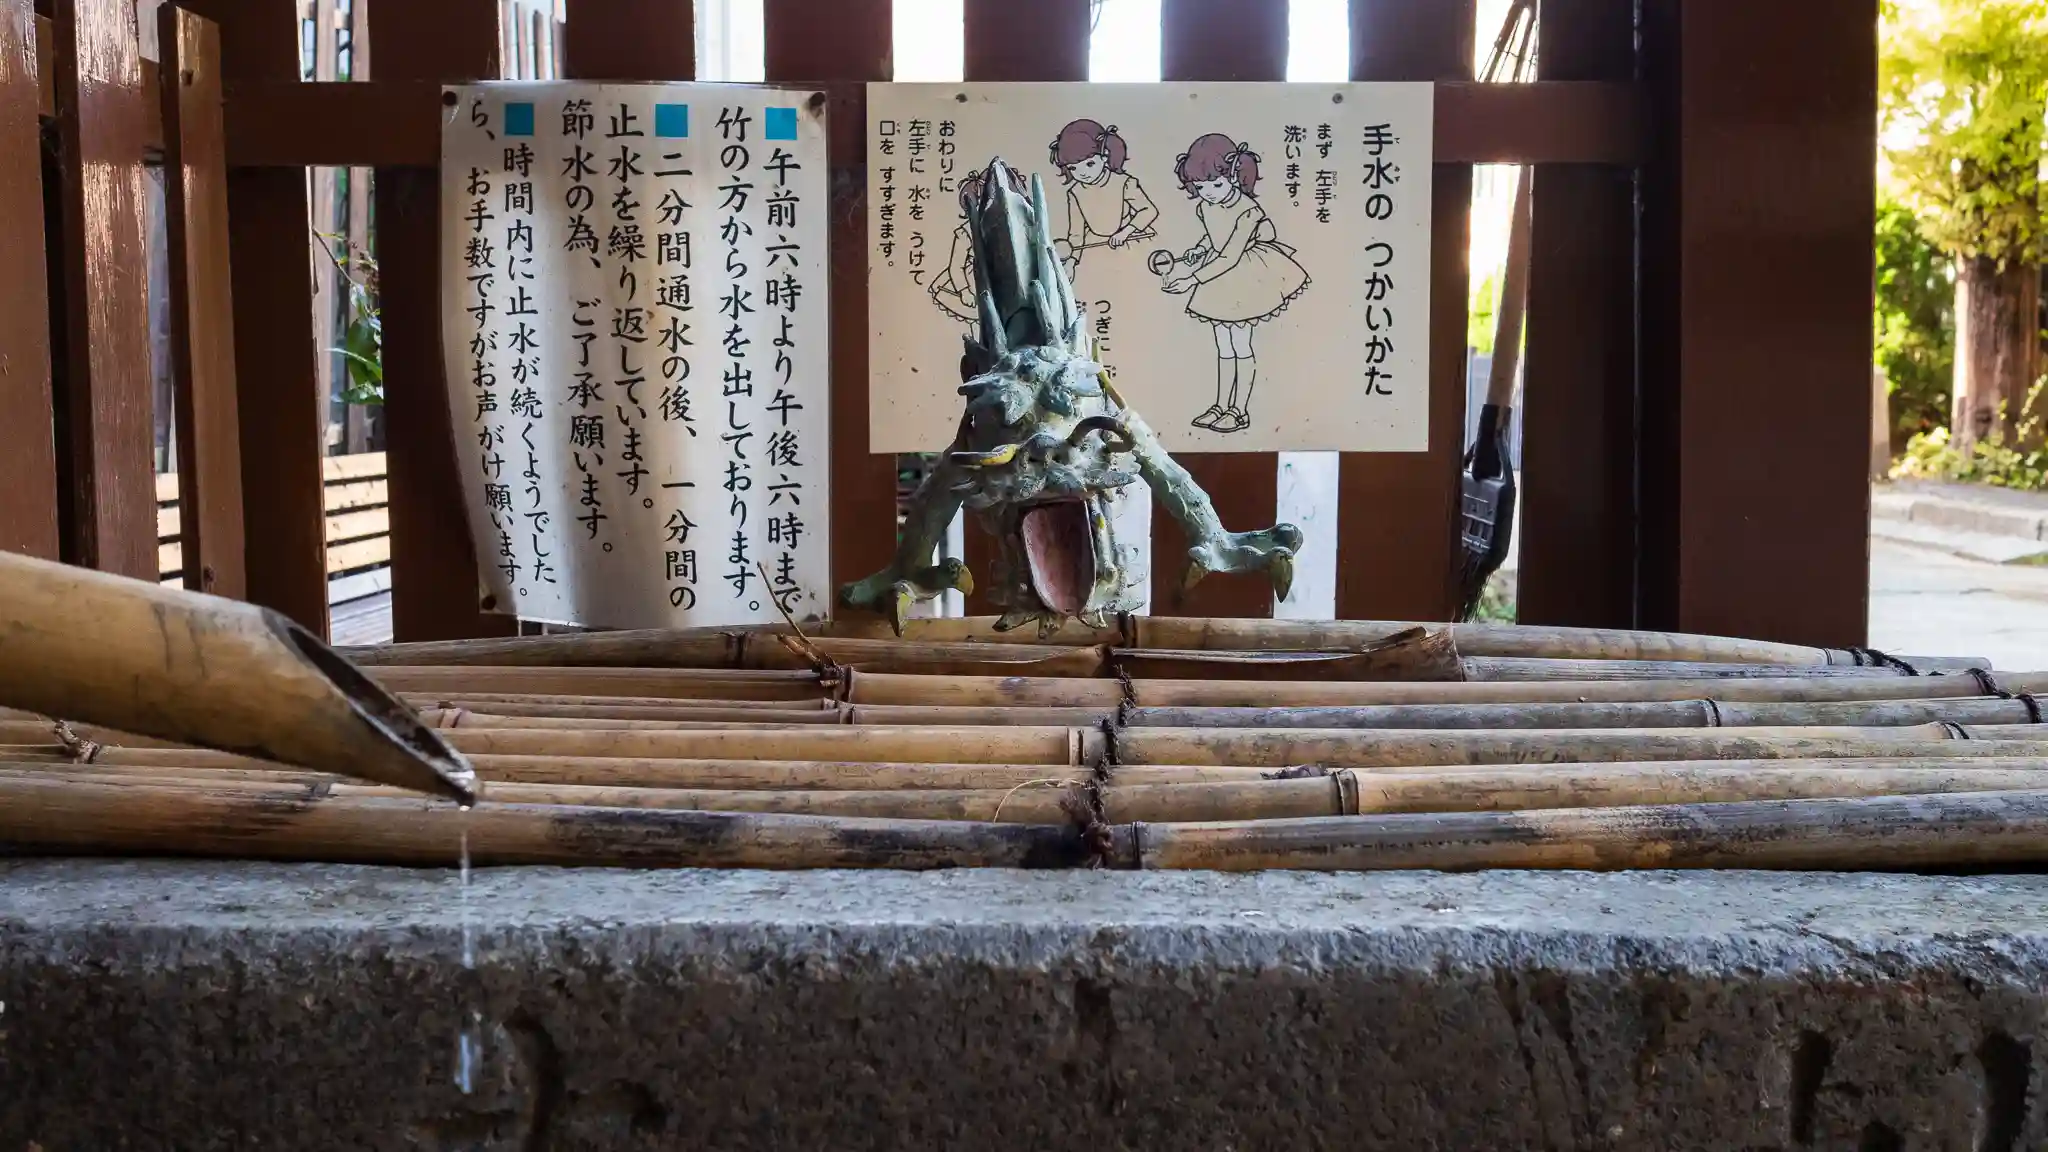 手水の つかいかた
まず 左手を
洗います。
つぎに
おわりに
左手に 水を うけて
口を すすぎます。
■午前六時より午後六時まで
竹の方から水を出しております。
■二分間通水の後、一分間の
止水を繰り返しています。
節水の為、ご了承願います。
■時間内に止水が続くようでした
ら、お手数ですがお声がけ願います。